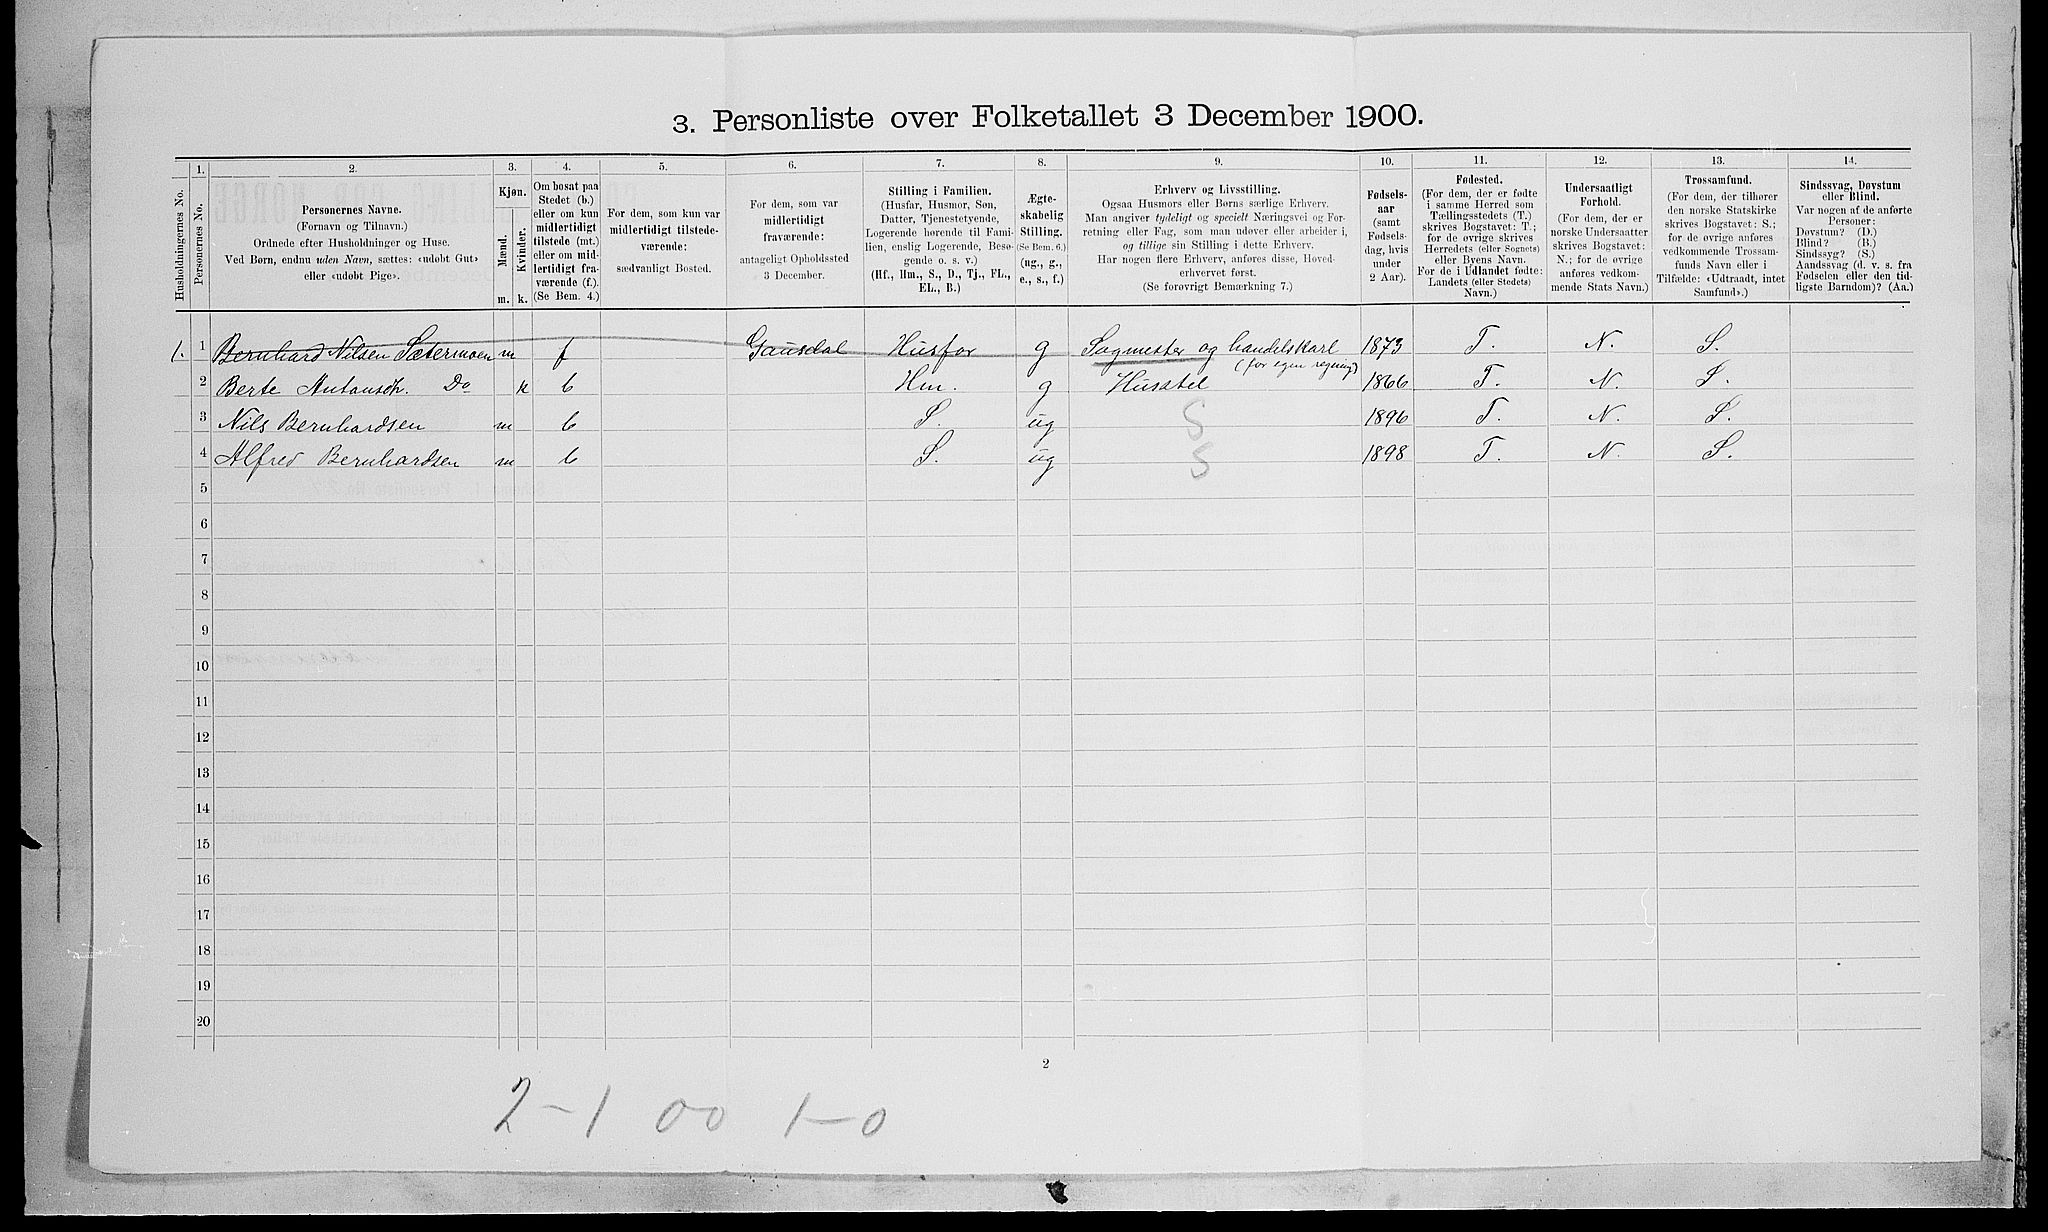 3. Personliste over Folketallet 3 December 1900.
Husholdningernes No.
1.
Personernes No.
2.
Personernes Navne.
(Fornavn og Tilnavn.)
Ordnede efter Husholdninger og Huse.
Ved Børn, endnu uden Navn, sættes: «udøbt Gut»
eller «udøbt Pige».
3.
Kjøn.
Mænd.
Kvinder.
m.
k.
4.
Om bosat paa
Stedet (b.)
eller om kun
midlertidigt
tilstede (mt.)
eller om mid-
lertidigt fra-
værende (f.).
(Se Bem. 4.)
5.
For dem, som kun var
midlertidigt tilstede-
værende:
sædvanligt Bosted.
6.
For dem, som var
midlertidigt
fraværende:
antageligt Opholdssted
3 December.
7.
Stilling i Familien.
(Husfar, Husmor, Søn,
Datter, Tjenestetyende,
Logerende hørende til Fami-
lien, enslig Logerende, Besø-
gende o. s. v.)
(Hf., Hm., S., D., Tj., FL.,
EL., B.)
8.
Ægte-
skabelig
Stilling.
(Se Bem. 6.)
(ug., g.,
e., s., f.)
9.
Erhverv og Livsstilling.
Ogsaa Husmors eller Børns særlige Erhverv.
Man angiver tydeligt og specielt Næringsvei og For-
retning eller Fag, som man udøver eller arbeider i,
og tillige sin Stilling i dette Erhverv.
Har nogen flere Erhverv, anføres disse, Hoved-
erhvervet først.
(Se forøvrigt Bemærkning 7.)
10.
Fødsels-
aar
(samt
Fødsels-
dag, hvis
under
2 Aar).
11.
Fødested.
(For dem, der er fødte
i samme Herred som
Tællingsstedets (T.)
skrives Bogstavet: T.;
for de øvrige skrives
Herredets (eller Sognets)
eller Byens Navn.
For de i Udlandet fødte:
Landets (eller Stedets)
Navn.)
12.
Undersaatligt
Forhold.
(For dem, der er
norske Undersaatter
skrives Bogstavet:
N.; for de øvrige
anføres vedkom-
mende Stats Navn.)
13.
Trossamfund.
(For dem, der tilhører
den norske Statskirke
skrives Bogstavet: S.;
for de øvrige anføres
vedkommende Trossam-
funds Navn eller i
Tilfælde: «Udtraadt, intet
Samfund».)
14.
Sindssvag, Døvstum
eller Blind.
Var nogen af de anførte
Personer:
Døvstum? (D.)
Blind? (B.)
Sindssyg? (S.)
Aandssvag (d. v. s. fra
Fødselen eller den tid-
ligste Barndom)? (Aa.)
1. 1 Bernhard Nilsen Sætermoen m f Gausdal Husfar g Sagmester og handelskarl 1873 T. N. S.
(for egen regning)
2 Berte Antonsdt. Do k b Hm. g Husstel 1866 T. N. S.
3 Nils Bernhardsen m b S. ug S 1896 T. N. S.
4 Alfred Bernhardsen m b S. ug S 1898 T. N. S.
5
6
7
8
9
10
11
12
13
14
15
16
17
18
19
20
2
2-1 00 1-0